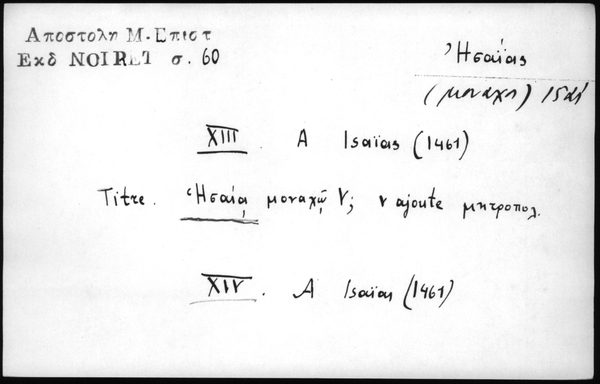 Αποστολη Μ. Επιστ
Εκδ NOIRET σ. 60
Ἡσαΐας
(μοναχη) 15αἱ
XIII. A Isaïas (1461)
Titre. Ἡσαίᾳ μοναχῷ V; v ajoute μητροπολ.
XIV. A Isaïas (1461)